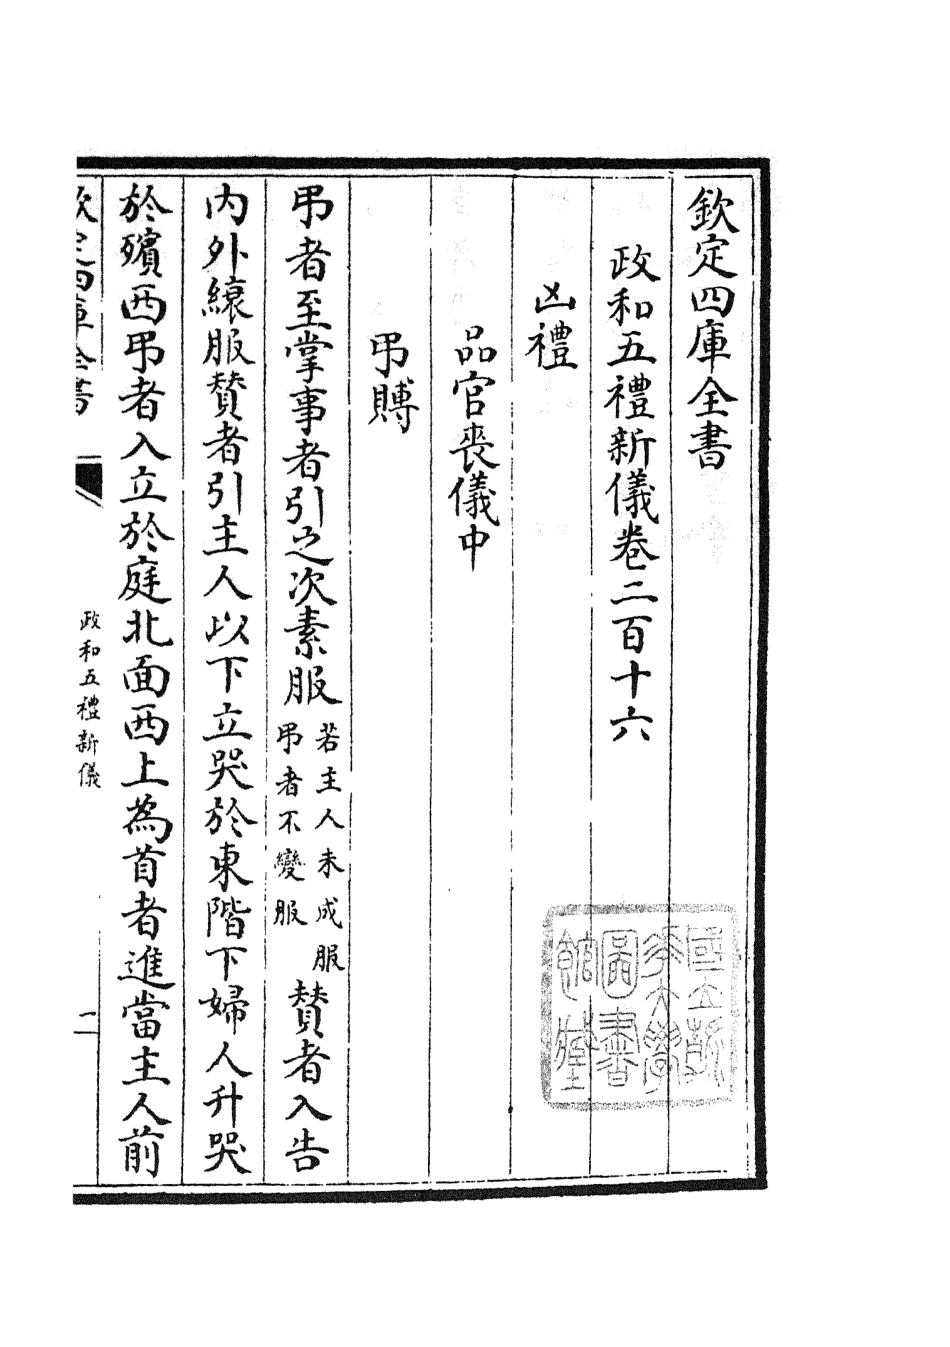 欽定四庫全書
政和五禮新儀卷二百十六
凶禮
品官喪儀中
弔賻
弔者至掌事者引之次素服若主人未成服弔者不變服賛者入告
内外縗服賛者引主人以下立哭於東階下婦人升哭
於殯西弔者入立於庭北面西上為首者進當主人前
欽定四庫全書
政和五禮新儀
一
國立
大學
圖書
館藏